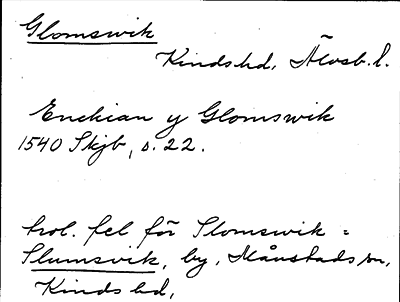 Glomswik
Kinds hd, Älvsb. l.
Enckian y Glomswik
1540 Skjb, s. 22.
trol. fel för Slomswik =
Slumsvik, by, Månstads sn,
Kinds hd,